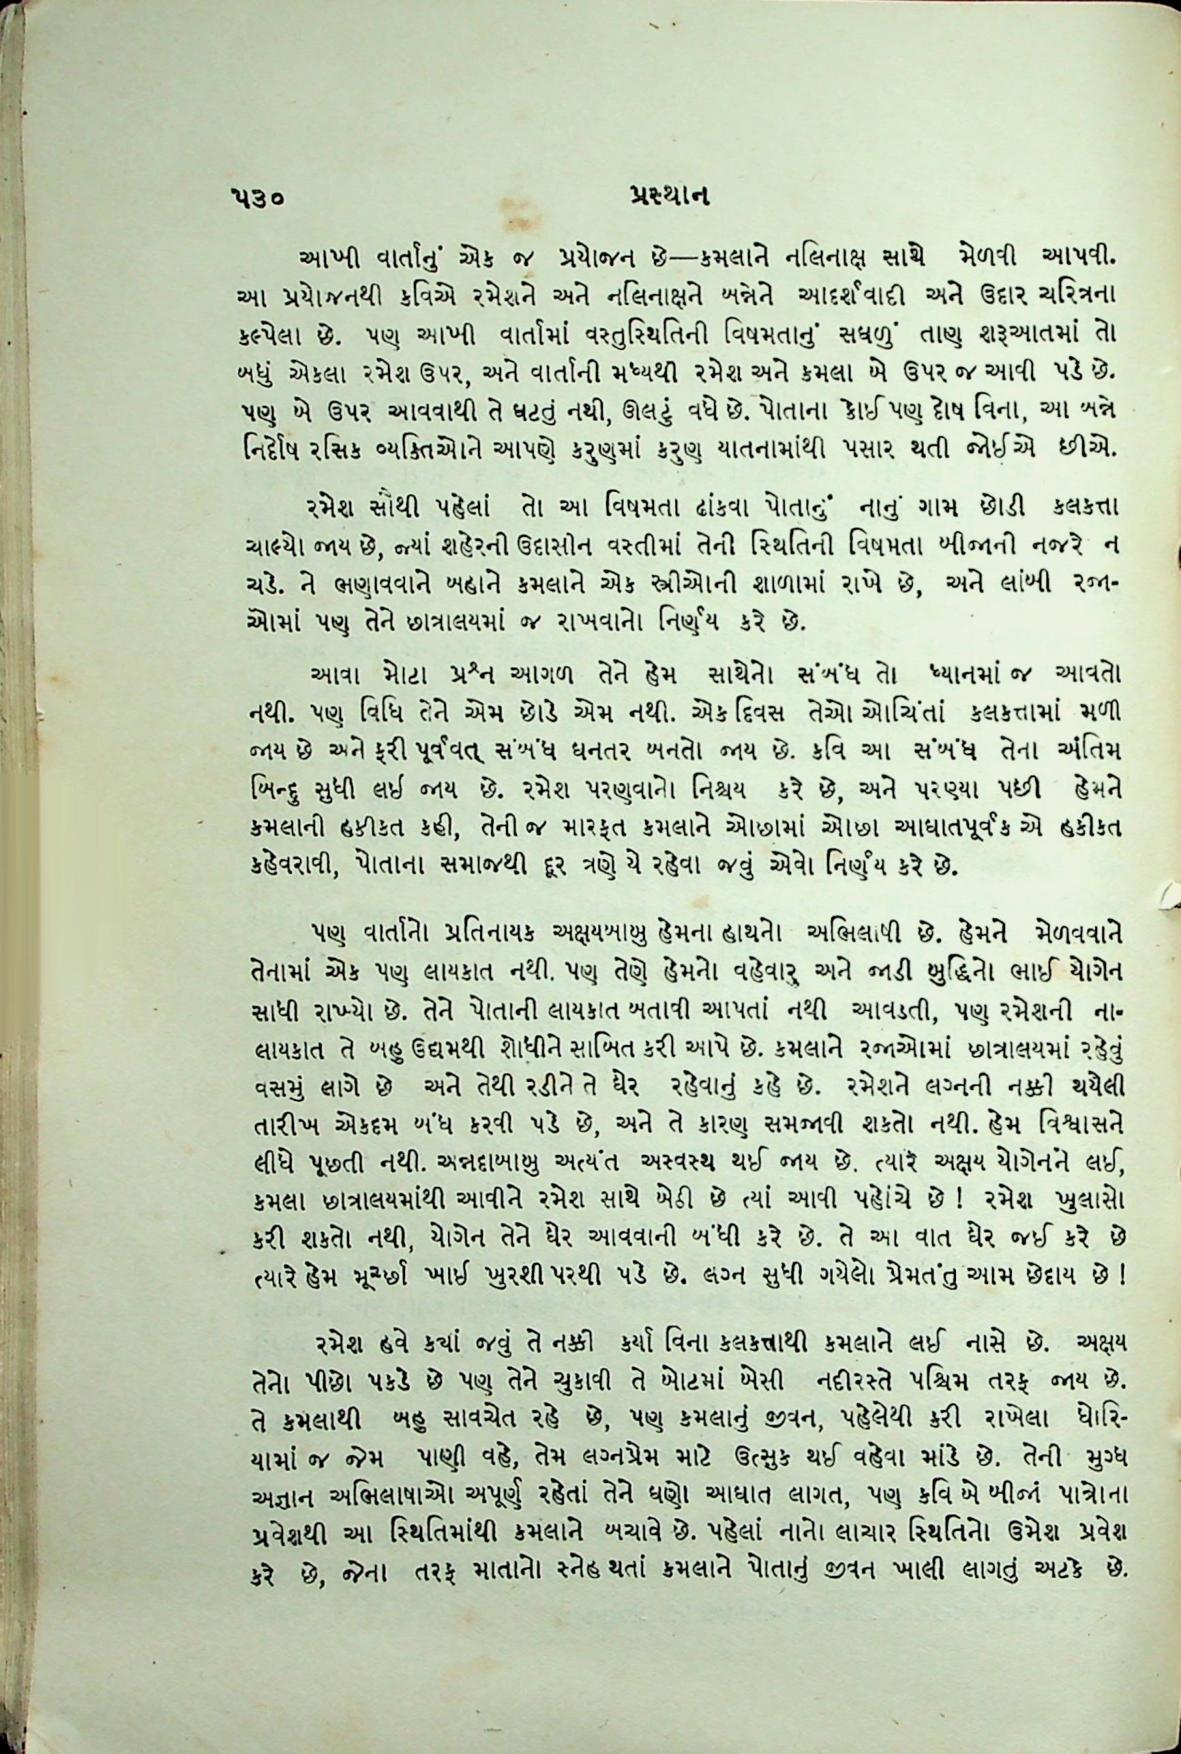 ૫૩૦ પ્રસ્થાન
આખી વાર્તાનું એક જ પ્રયોજન છે—કમલાને નલિનાક્ષ સાથે મેળવી આપવી.
આ પ્રયોજનથી કવિએ રમેશને અને નલિનાક્ષને બન્નેને આદર્શવાદી અને ઉદાર ચરિત્રના
કલ્પેલા છે. પણ આખી વાર્તામાં વસ્તુસ્થિતિની વિષમતાનું સઘળું તાણ શરૂઆતમાં તો
બધું એકલા રમેશ ઉપર, અને વાર્તાની મધ્યથી રમેશ અને કમલા બે ઉપર જ આવી પડે છે.
પણ બે ઉપર આવવાથી તે ઘટતું નથી, ઊલટું વધે છે. પોતાના કોઈ પણ દોષ વિના, આ બન્ને
નિર્દોષ રસિક વ્યક્તિઓને આપણે કરુણમાં કરુણ યાતનામાંથી પસાર થતી જોઈએ છીએ.
રમેશ સૌથી પહેલાં તો આ વિષમતા ઢાંકવા પોતાનું નાનું ગામ છોડી કલકત્તા
ચાલ્યો જાય છે, જ્યાં શહેરની ઉદાસીન વસ્તીમાં તેની સ્થિતિની વિષમતા બીજાની નજરે ન
ચડે. ને ભણાવવાને બહાને કમલાને એક સ્ત્રીઓની શાળામાં રાખે છે, અને લાંબી રજા-
ઓમાં પણ તેને છાત્રાલયમાં જ રાખવાનો નિર્ણય કરે છે.
આવા મોટા પ્રશ્ન આગળ તેને હેમ સાથેનો સંબંધ તો ધ્યાનમાં જ આવતો
નથી. પણ વિધિ તેને એમ છોડે એમ નથી. એક દિવસ તેઓ ઓચિંતાં કલકત્તામાં મળી
જાય છે અને ફરી પૂર્વવત્ સંબંધ ઘનતર બનતો જાય છે. કવિ આ સંબંધ તેના અંતિમ
બિન્દુ સુધી લઈ જાય છે. રમેશ પરણવાનો નિશ્ચય કરે છે, અને પરણ્યા પછી હેમને
કમલાની હકીકત કહી, તેની જ મારફત કમલાને ઓછામાં ઓછા આઘાતપૂર્વક એ હકીકત
કહેવરાવી, પોતાના સમાજથી દૂર ત્રણે યે રહેવા જવું એવો નિર્ણય કરે છે.
પણ વાર્તાનો પ્રતિનાયક અક્ષયબાબુ હેમના હાથનો અભિલાષી છે. હેમને મેળવવાને
તેનામાં એક પણ લાયકાત નથી. પણ તેણે હેમનો વહેવારુ અને જાડી બુદ્ધિનો ભાઈ યોગેન
સાધી રાખ્યો છે. તેને પોતાની લાયકાત બતાવી આપતાં નથી આવડતી, પણ રમેશની ના-
લાયકાત તે બહુ ઉદ્યમથી શોધીને સાબિત કરી આપે છે. કમલાને રજાઓમાં છાત્રાલયમાં રહેવું
વસમું લાગે છે અને તેથી રડીને તે ઘેર રહેવાનું કહે છે. રમેશને લગ્નની નક્કી થયેલી
તારીખ એકદમ બંધ કરવી પડે છે, અને તે કારણ સમજાવી શકતો નથી. હેમ વિશ્વાસને
લીધે પૂછતી નથી. અન્નદાબાબુ અત્યંત અસ્વસ્થ થઈ જાય છે. ત્યારે અક્ષય યોગેનને લઈ,
કમલા છાત્રાલયમાંથી આવીને રમેશ સાથે બેઠી છે ત્યાં આવી પહોંચે છે ! રમેશ ખુલાસો
કરી શકતો નથી, યોગેન તેને ઘેર આવવાની બંધી કરે છે. તે આ વાત ઘેર જઈ કરે છે
ત્યારે હેમ મૂર્ચ્છા ખાઈ ખુરશી પરથી પડે છે. લગ્ન સુધી ગયેલો પ્રેમતંતુ આમ છેદાય છે !
રમેશ હવે ક્યાં જવું તે નક્કી કર્યા વિના કલકત્તાથી કમલાને લઈ નાસે છે. અક્ષય
તેનો પીછો પકડે છે પણ તેને ચુકાવી તે બોટમાં બેસી નદીરસ્તે પશ્ચિમ તરફ જાય છે.
તે કમલાથી બહુ સાવચેત રહે છે, પણ કમલાનું જીવન, પહેલેથી કરી રાખેલા ધોરિ-
યામાં જ જેમ પાણી વહે, તેમ લગ્નપ્રેમ માટે ઉત્સુક થઈ વહેવા માંડે છે. તેની મુગ્ધ
અજ્ઞાન અભિલાષાઓ અપૂર્ણ રહેતાં તેને ઘણો આઘાત લાગત, પણ કવિ બે બીજાં પાત્રોના
પ્રવેશથી આ સ્થિતિમાંથી કમલાને બચાવે છે. પહેલાં નાનો લાચાર સ્થિતિનો ઉમેશ પ્રવેશ
કરે છે, જેના તરફ માતાનો સ્નેહ થતાં કમલાને પોતાનું જીવન ખાલી લાગતું અટકે છે.